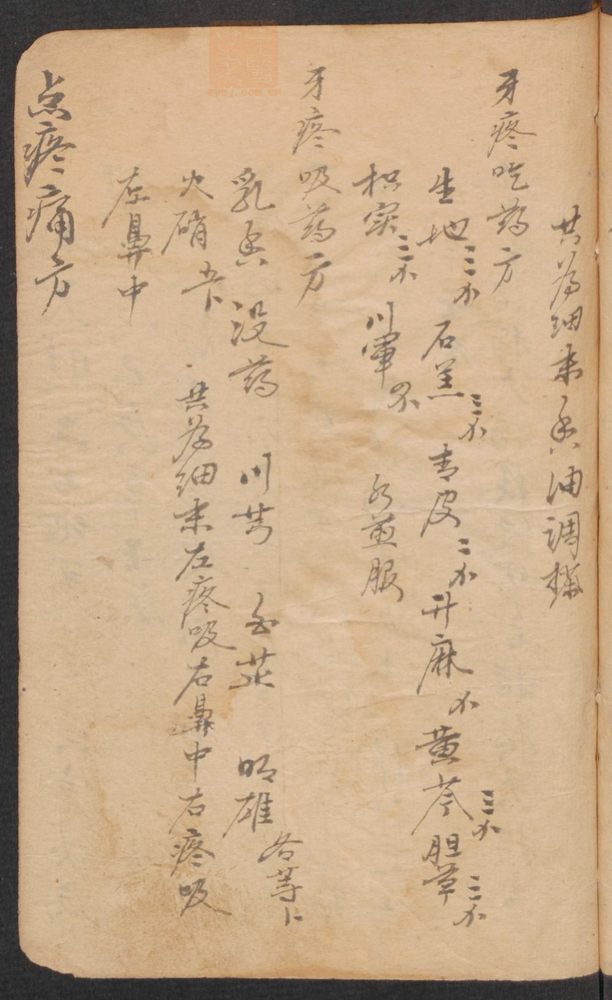 共为细末香油调搽
牙疼吃药方
生地三个 石羔三个 青皮二个 升麻个 黄芩三个 胆草三个
枳实三个 川軍个 水煎服
牙疼吸药方
乳香 没药 川芎 白芷 明雄 各等卜
火硝卡 共为细末左疼吸右鼻中右疼吸
左鼻中
点疼痛方